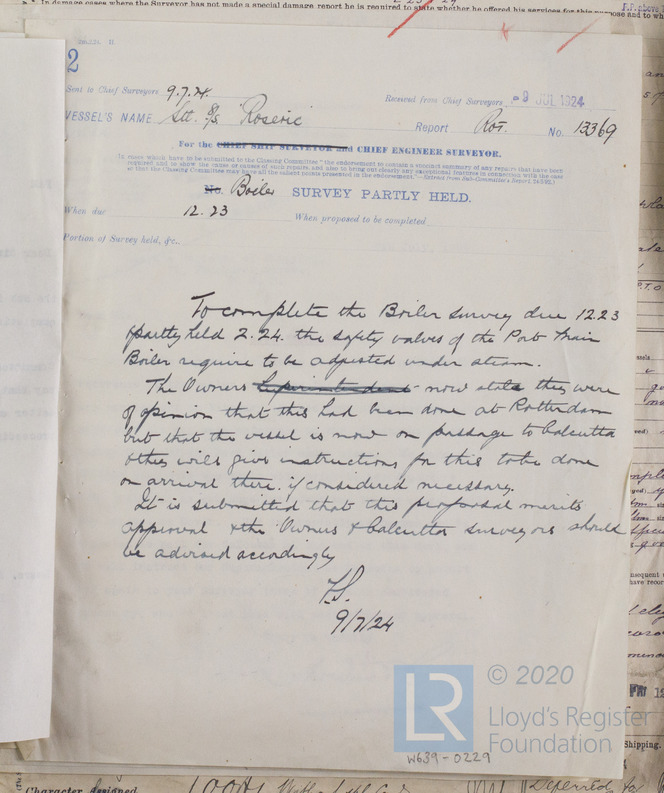 * In damage cases where the Surveyor has not made a special damage report he is required to state whether he offered his services for this purpose and to
2m,2,24. H.
2
Sent to Chief Surveyors 9.7.24.
Received from Chief Surveyors -9 JUL 1924
VESSEL'S NAME Stl. S/S Roseric
Report Rot. No. 13369
For the CHIEF SHIP SURVEYOR and CHIEF ENGINEER SURVEYOR.
(In cases which have to be submitted to the Classing Committee "the endorsement to contain a succinct summary of any repairs that have been
required and to show the cause or causes of such repairs, and also to bring out clearly any exceptional features in connection with the case
so that the Classing Committee may have all the salient points presented in the endorsement."—Extract from Sub-Committee's Report
No. Boiler SURVEY PARTLY HELD.
When due 12.23
When proposed to be completed
Portion of Survey held, &c.
To complete the Boiler survey due 12.23
& partly held 2.24. the safety valves of the Port Main
Boiler require to be adjusted under steam.
The Owners Superintendent now state they were
of opinion that this had been done at Rotterdam
but that the vessel is now on passage to Calcutta
& they will give instructions for this to be done
on arrival there. if considered necessary.
It is submitted that this proposal merits
approval & the Owners & Calcutta surveyors should
be advised accordingly
F.S.
9/7/24
LR
© 2020
Lloyd's Register
Foundation
W639-0229
Shipping.
Character assigned
Deferred for